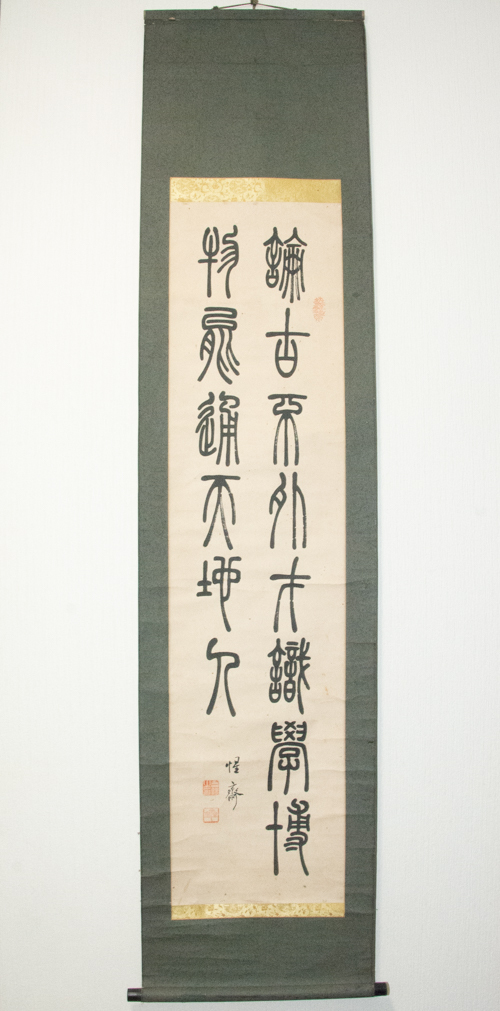 論古不外才識學博
物能通天地人
惺齋